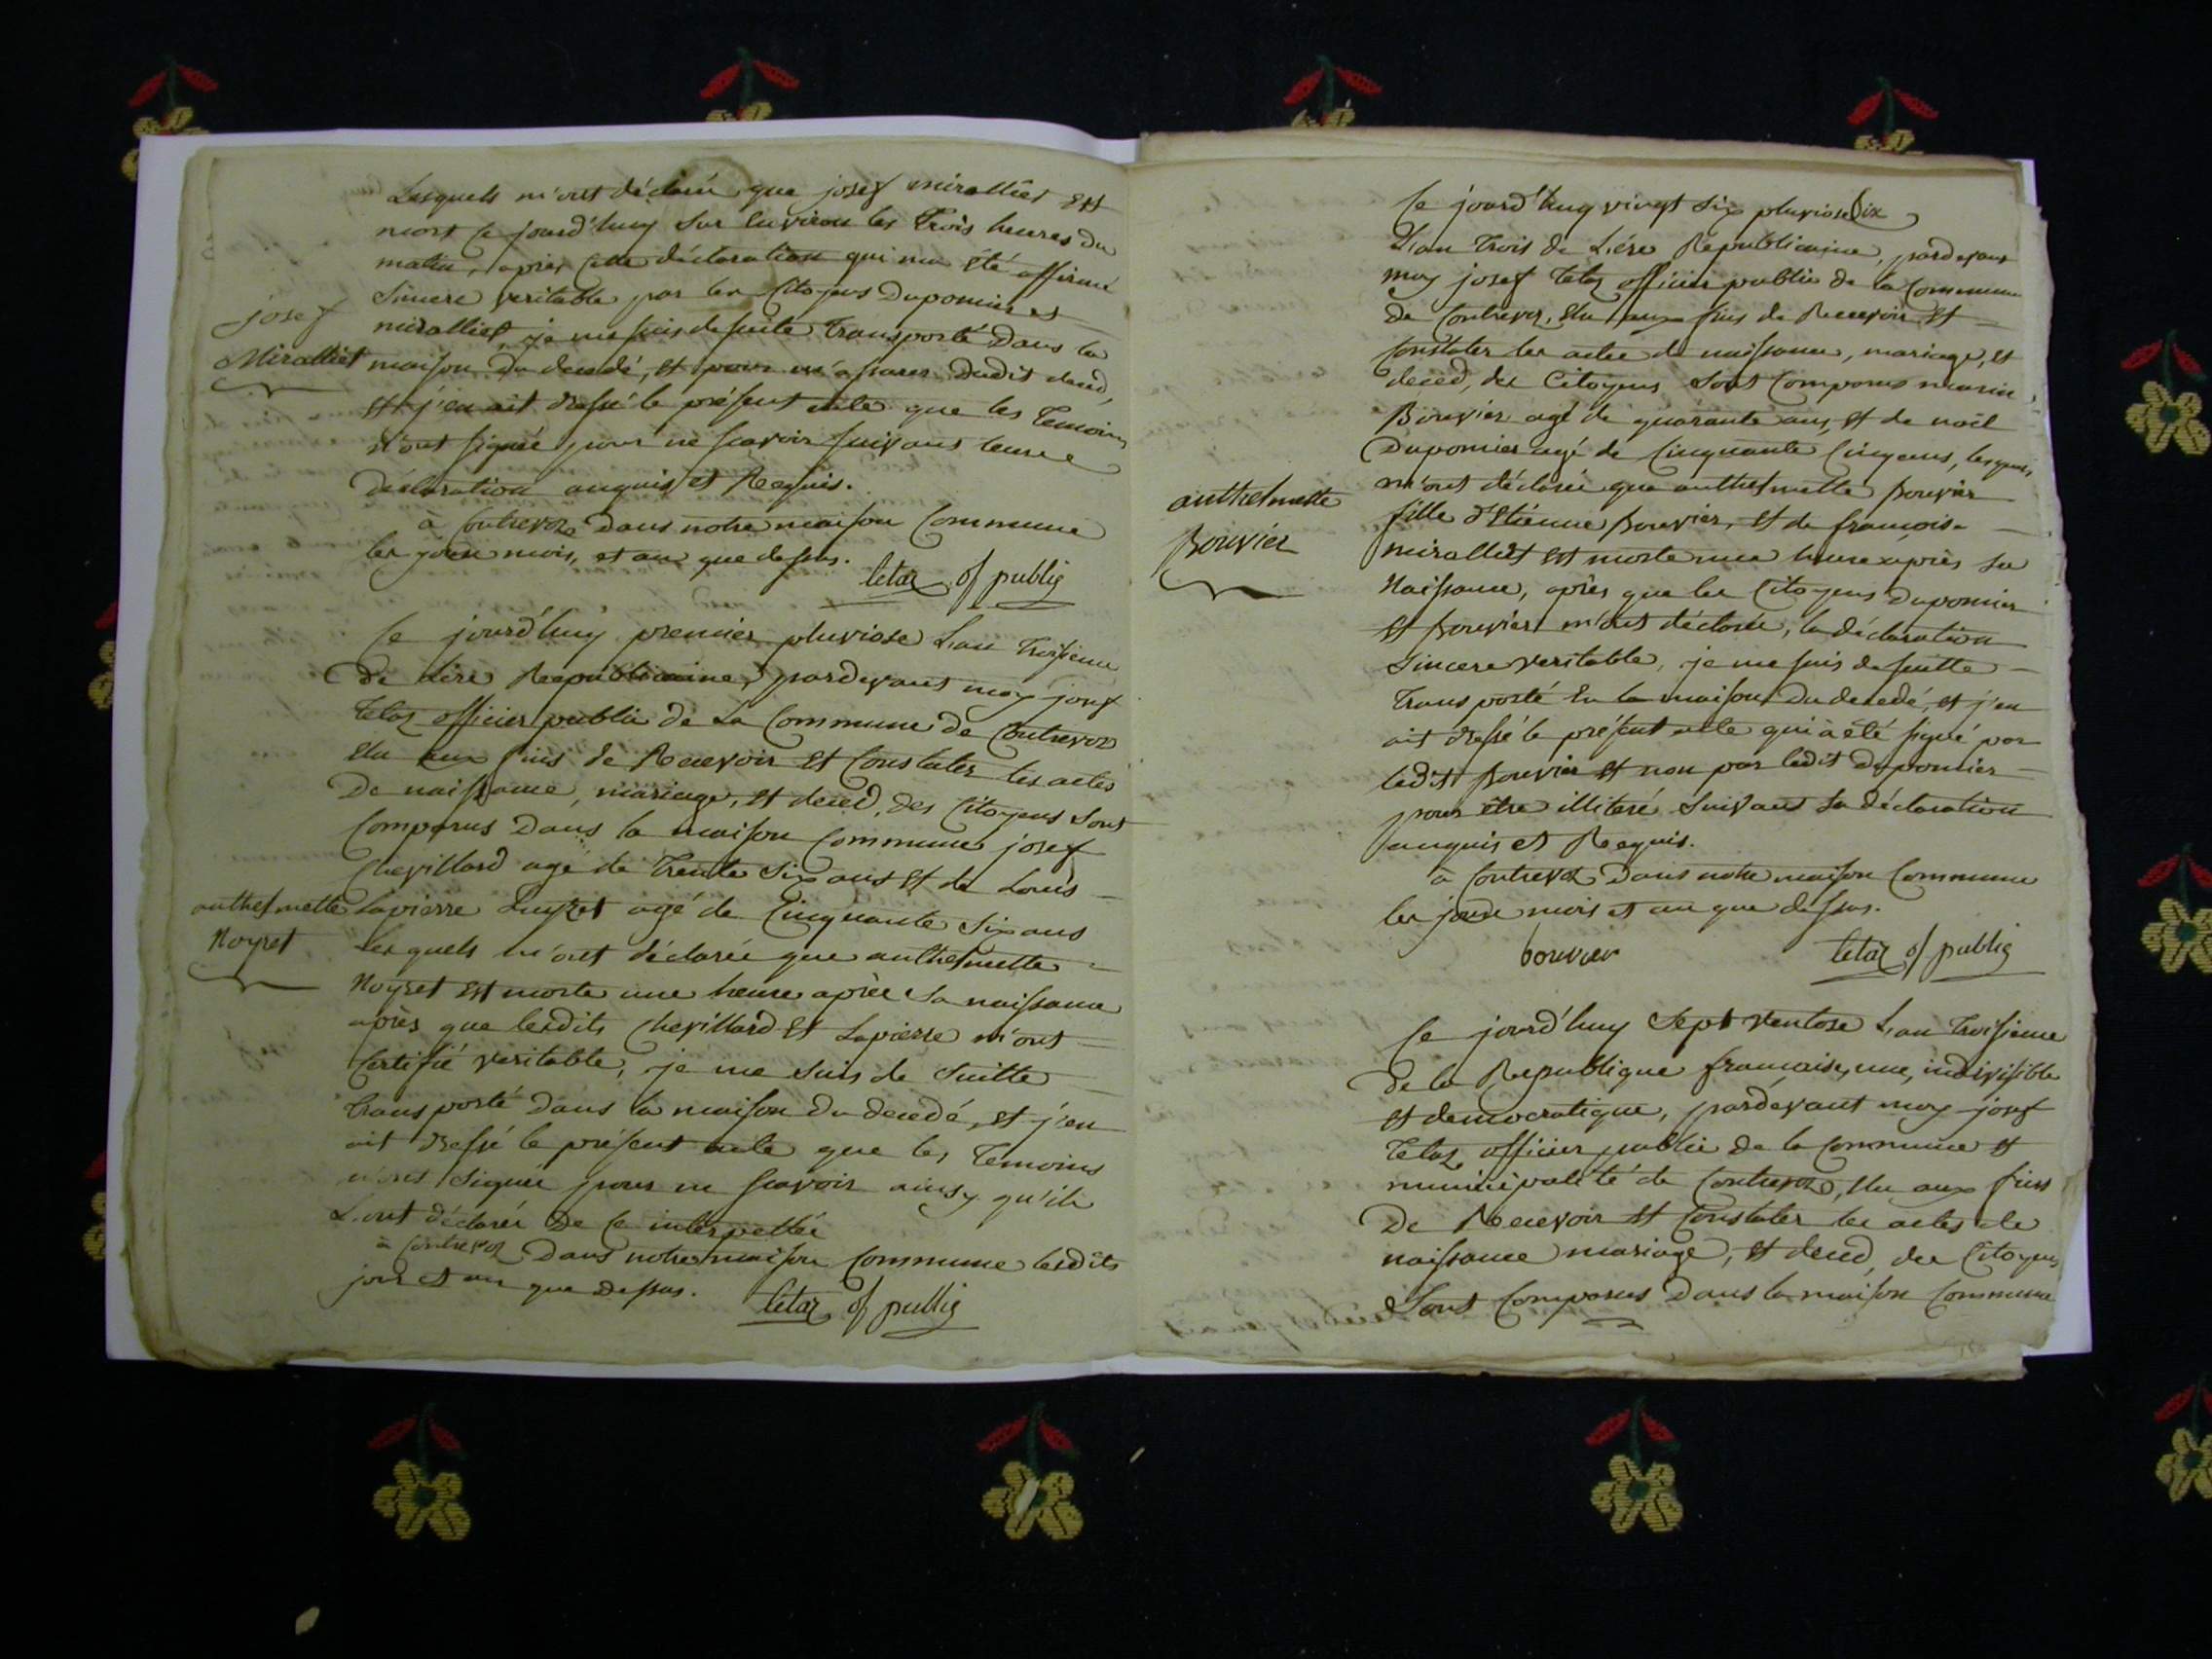 Lesquels m'ont déclaré que josef miralliet Est
mort Ce jourd'huy sur Environ les Trois heures du
matin, après Cette déclaration qui m'a été affirmé
Sincere veritable par les Citoyens Duponier et
miralliet, je me suis de suite Transporté Dans la
josef
Miralliet
maison Du decedé, Et pour m'assurer Dudit deced,
Et j'en ait dressé le présent acte que les Temoins
n'ont signé pour ne scavoir suivant leurs
déclaration enquis et Requis.
à Contrevoz Dans notre maison Commune
les jour mois, et an que dessus.
tetaz of public
Ce jourd'huy premier pluviose L'an Troisieme
De Lère Republicaine, pardevant moy josef
Tetaz officier public de La Commune de Contrevoz
Elu aux fins de Recevoir Et Constater les actes
De naissance, mariage, Et deced, des Citoyens Sont
Comparus Dans la maison Commune josef
Chevillard agé de Trente Six ans Et de Louis
anthelmette
Noyret
Lapierre agé de Cinquante Six ans
Lesquels m'ont déclaré que anthelmette
Noyret Est morte une heure après Sa naissance
après que lesdits Chevillard Et Lapierre m'ont
Certifié veritable, je me suis de Suitte
Transporté Dans la maison Du decedé, et j'en
ait dressé le présent acte que les Temoins
n'ont signé pour ne scavoir ainsy qu'ils
L'ont déclaré De Ce interpellé
à Contrevoz Dans notre maison Commune lesdits
jour et an que Dessus.
tetaz of public
Ce jourd'huy vingt Six pluviose Six
L'an Trois de Lére Republicaine, pardevant
moy josef Tetaz officier public de la Commune
De Contrevoz, Elu aux fins de Recevoir Et
Constater les actes de naissance, mariage, Et
deced, des Citoyens Sont Comparus marin
Bouvier agé de quarante ans, Et de noël
Duponier agé de Cinquante Cinq ans, lesquels
m'ont déclaré que anthelmette Bouvier
anthelmette
Bouvier
fille d'Etienne Bouvier, et de françoise
miralliet est morte une heure après sa
Naissance, après que les Citoyens Duponier
Et Bouvier m'ont déclaré, la déclaration
Sincere veritable, je me suis de suitte
Transporté En la maison Du decedé, et j'en
ait dressé le présent acte qui à été signé par
ledit Bouvier Et non par ledit Duponier
pour être illiteré Suivant Sa déclaration
enquis et Requis.
à Contrevoz Dans notre maison Commune
les jour mois et an que dessus.
bouvier tetaz of public
Ce jourd'huy Sept ventose L'an Troisieme
De la Republique francaise, une, indivisible
Et democratique, pardevant moy josef
Tetaz officier public de la Commune et
municipalité de Contrevoz, Elu aux fins
De Recevoir Et Constater les actes de
naissance mariage, Et deced, des Citoyens
Sont Comparus Dans la maison Commune